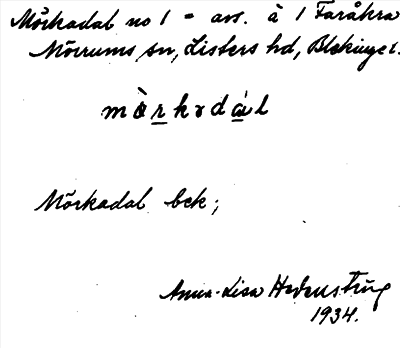 Mörkadal no 1 = avs. å 1 Faråkra
Mörrums sn, Listers hd, Blekinge l.
mòrkədál
Mörkadal bek;
Anna-Lisa Hedenstrüg
1934.